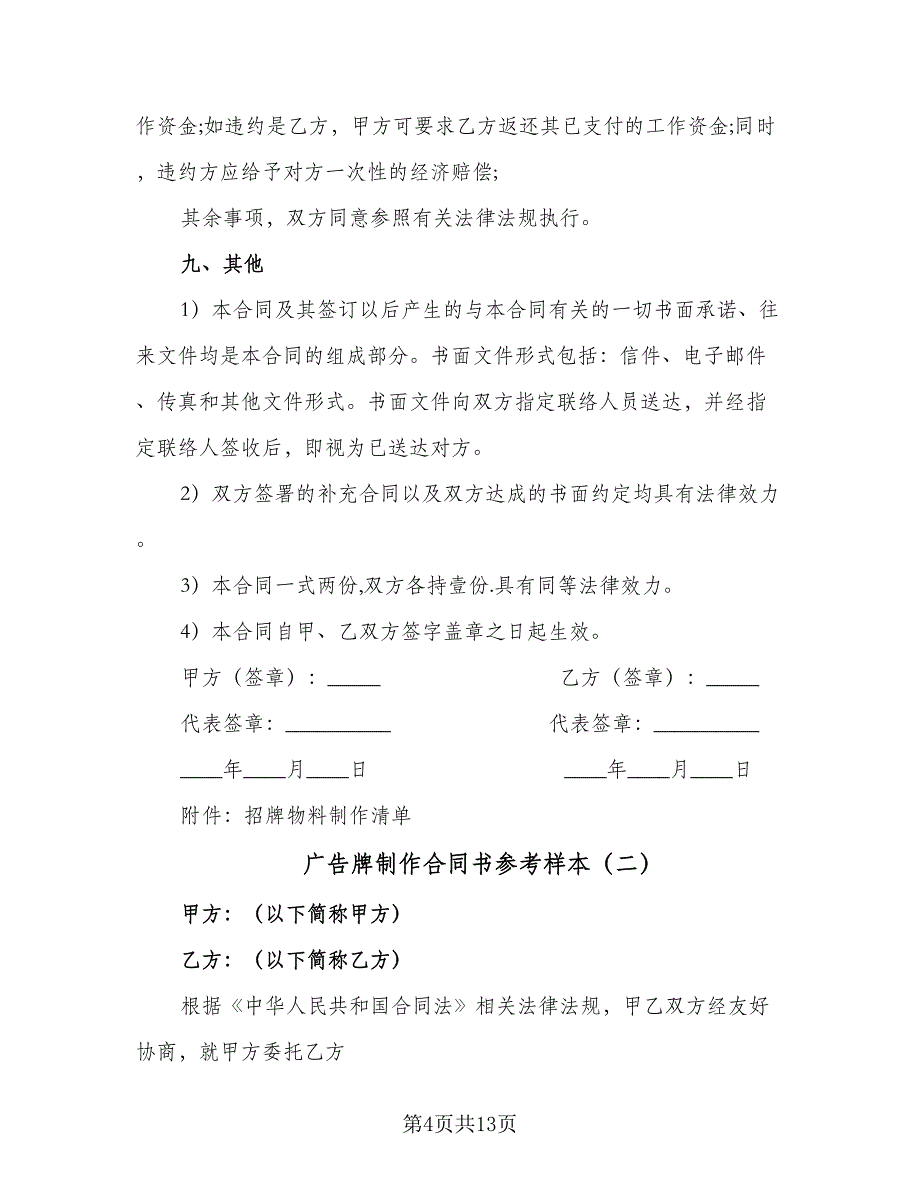 作资金;如违约是乙方，甲方可要求乙方返还其已支付的工作资金;同时
，违约方应给予对方一次性的经济赔偿;
其余事项，双方同意参照有关法律法规执行。
九、其他
1）本合同及其签订以后产生的与本合同有关的一切书面承诺、往
来文件均是本合同的组成部分。书面文件形式包括：信件、电子邮件
、传真和其他文件形式。书面文件向双方指定联络人员送达，并经指
定联络人签收后，即视为已送达对方。
2）双方签署的补充合同以及双方达成的书面约定均具有法律效力
。
3）本合同一式两份,双方各持壹份.具有同等法律效力。
4）本合同自甲、乙双方签字盖章之日起生效。
甲方（签章）：_____ 乙方（签章）：_____
代表签章：__________ 代表签章：__________
____年____月____日 ____年____月____日
附件：招牌物料制作清单
广告牌制作合同书参考样本（二）
甲方：（以下简称甲方）
乙方：（以下简称乙方）
根据《中华人民共和国合同法》相关法律法规，甲乙双方经友好
协商，就甲方委托乙方
第4页共13页